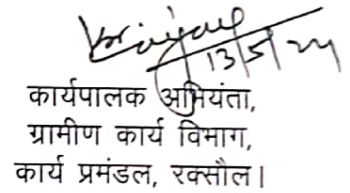 13/5/24
कार्यपालक अभियंता,
ग्रामीण कार्य विभाग,
कार्य प्रमंडल, रक्सौल।